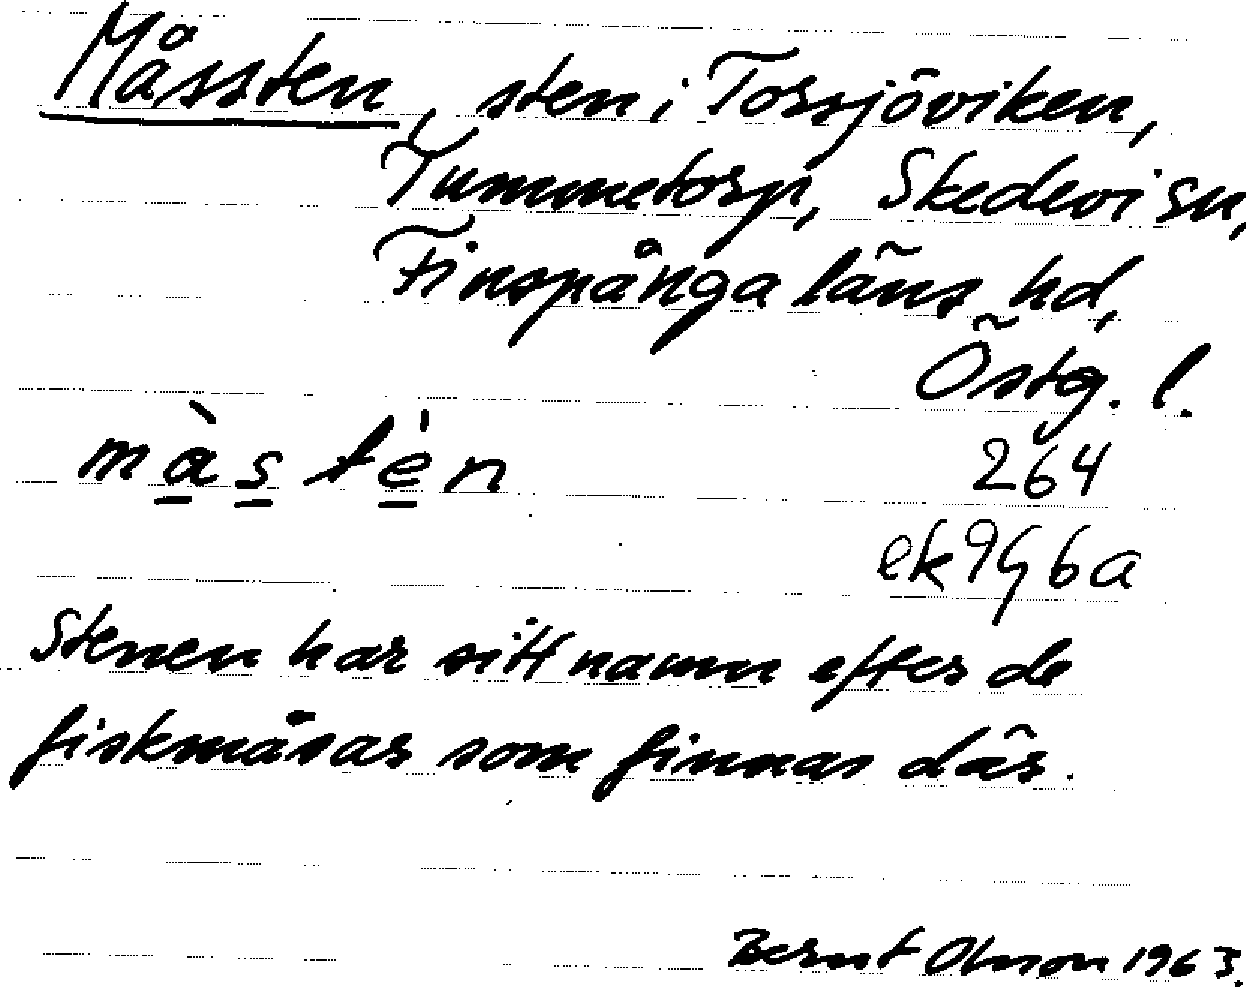 Måssten, sten i Torsjöviken,
Tummetorp, Skedevi sn,
Finspånga läns hd,
Östg. l.
màstèn 264
ek 9G6a
Stenen har sitt namn efter de
fiskmåsar som finnas där.
Bernt Olsson 1963.